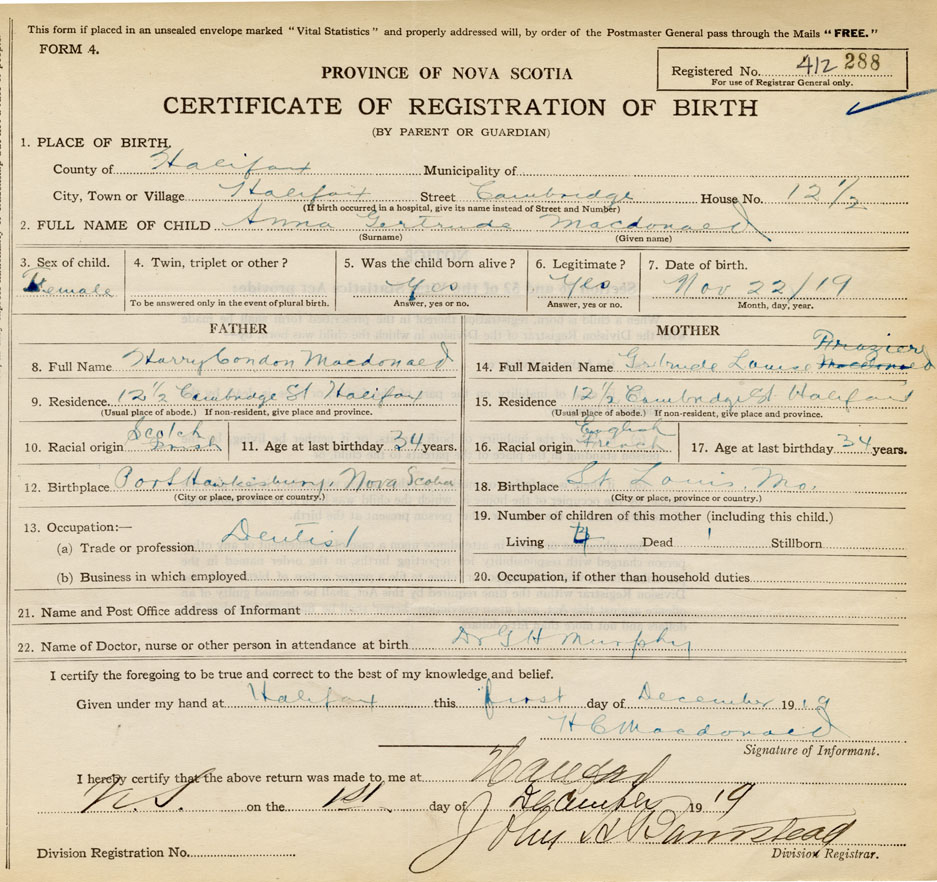 This form if placed in an unsealed envelope marked "Vital Statistics" and properly addressed will, by order of the Postmaster General pass through the Mails "FREE."
FORM 4.
Registered No. 412 288
For use of Registrar General only.
PROVINCE OF NOVA SCOTIA
CERTIFICATE OF REGISTRATION OF BIRTH
(BY PARENT OR GUARDIAN)
1. PLACE OF BIRTH.
County of Halifax Municipality of
City, Town or Village Halifax Street Cambridge House No. 12 1/2
(If birth occurred in a hospital, give its name instead of Street and Number)
2. FULL NAME OF CHILD Anna Gertrude Macdonald
(Surname) (Given name)
3. Sex of child. Female
4. Twin, triplet or other?
To be answered only in the event of plural birth.
5. Was the child born alive? Yes
Answer, yes or no.
6. Legitimate? Yes
Answer, yes or no.
7. Date of birth. Nov 22/19
Month, day, year.
FATHER
8. Full Name Harry Condon Macdonald
9. Residence 12 1/2 Cambridge St Halifax
(Usual place of abode.) If non-resident, give place and province.
10. Racial origin Scotch Irish
11. Age at last birthday 34 years.
12. Birthplace Port Hawkesbury, Nova Scotia
(City or place, province or country.)
13. Occupation:—
(a) Trade or profession Dentist
(b) Business in which employed
MOTHER
14. Full Maiden Name Gertrude Louise Macdonald
15. Residence 12 1/2 Cambridge St Halifax
(Usual place of abode.) If non-resident, give place and province.
16. Racial origin English French
17. Age at last birthday 34 years.
18. Birthplace St. Louis, Mo.
(City or place, province or country.)
19. Number of children of this mother (including this child.)
Living 4 Dead 1 Stillborn
20. Occupation, if other than household duties
21. Name and Post Office address of Informant
22. Name of Doctor, nurse or other person in attendance at birth Dr G H Murphy
I certify the foregoing to be true and correct to the best of my knowledge and belief.
Given under my hand at Halifax this first day of December 1919
H C Macdonald
Signature of Informant.
I hereby certify that the above return was made to me at Halifax
N.S. on the 1st day of December 1919
John A Barnstead
Division Registrar.
Division Registration No.